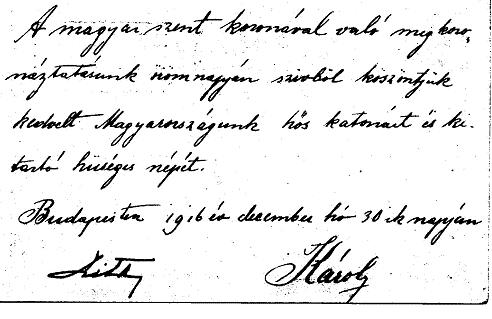 A magyar szent koronával való megkoro-
náztatásunk örömnapján szivből köszöntjük
kedvelt Magyarországunk hős katonáit és ki-
tartó hűséges népét.
Budapesten 1916 év december hó 30 ik napján
Zita Károly